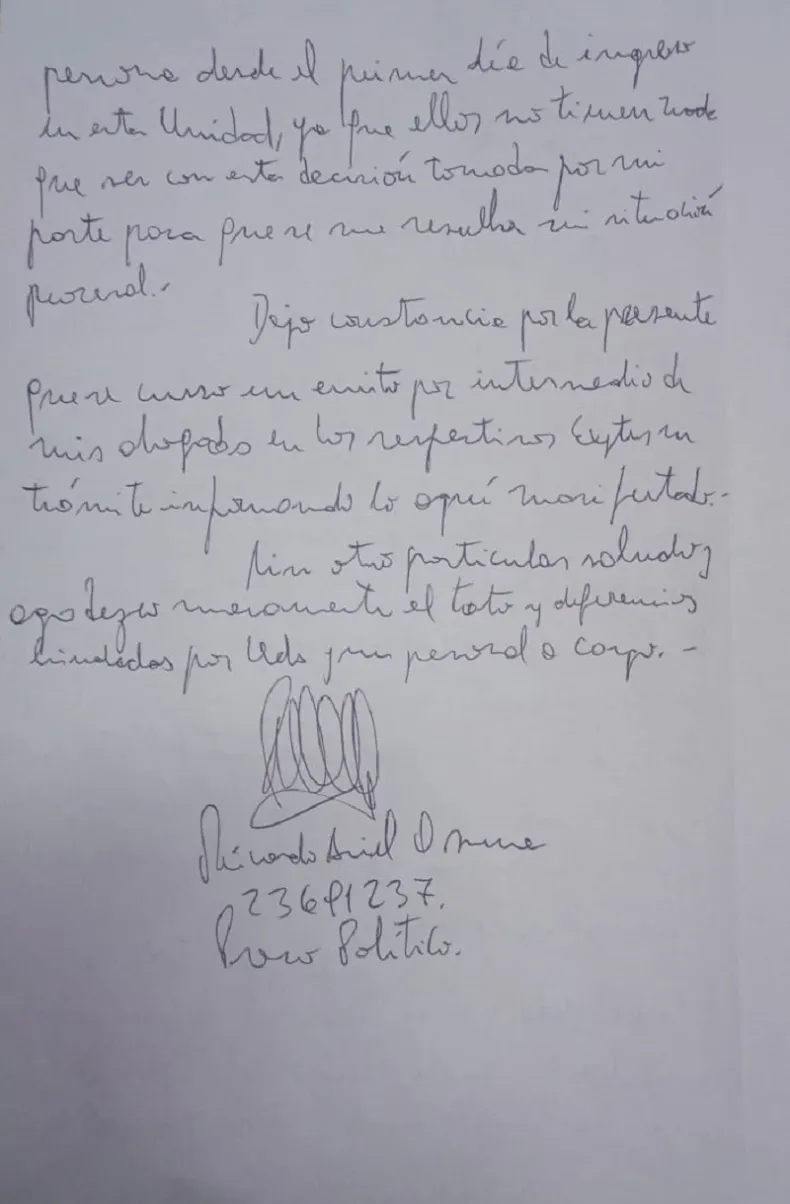 persona desde el primer día de ingreso
en esta Unidad, ya que ellos no tienen nada
que ver con esta decisión tomada por mi
parte para que se me resuelva mi situación
procesal.-
Dejo constancia por la presente
que se curso un escrito por intermedio de
mis abogados en los respectivos Exptes en
trámite informando lo aquí manifestado.-
Sin otro particular saludo y
agradezco nuevamente el trato y diferencias
brindadas por Uds y su personal a cargo.-
Ricardo Ariel
23691237.
Preso Político.